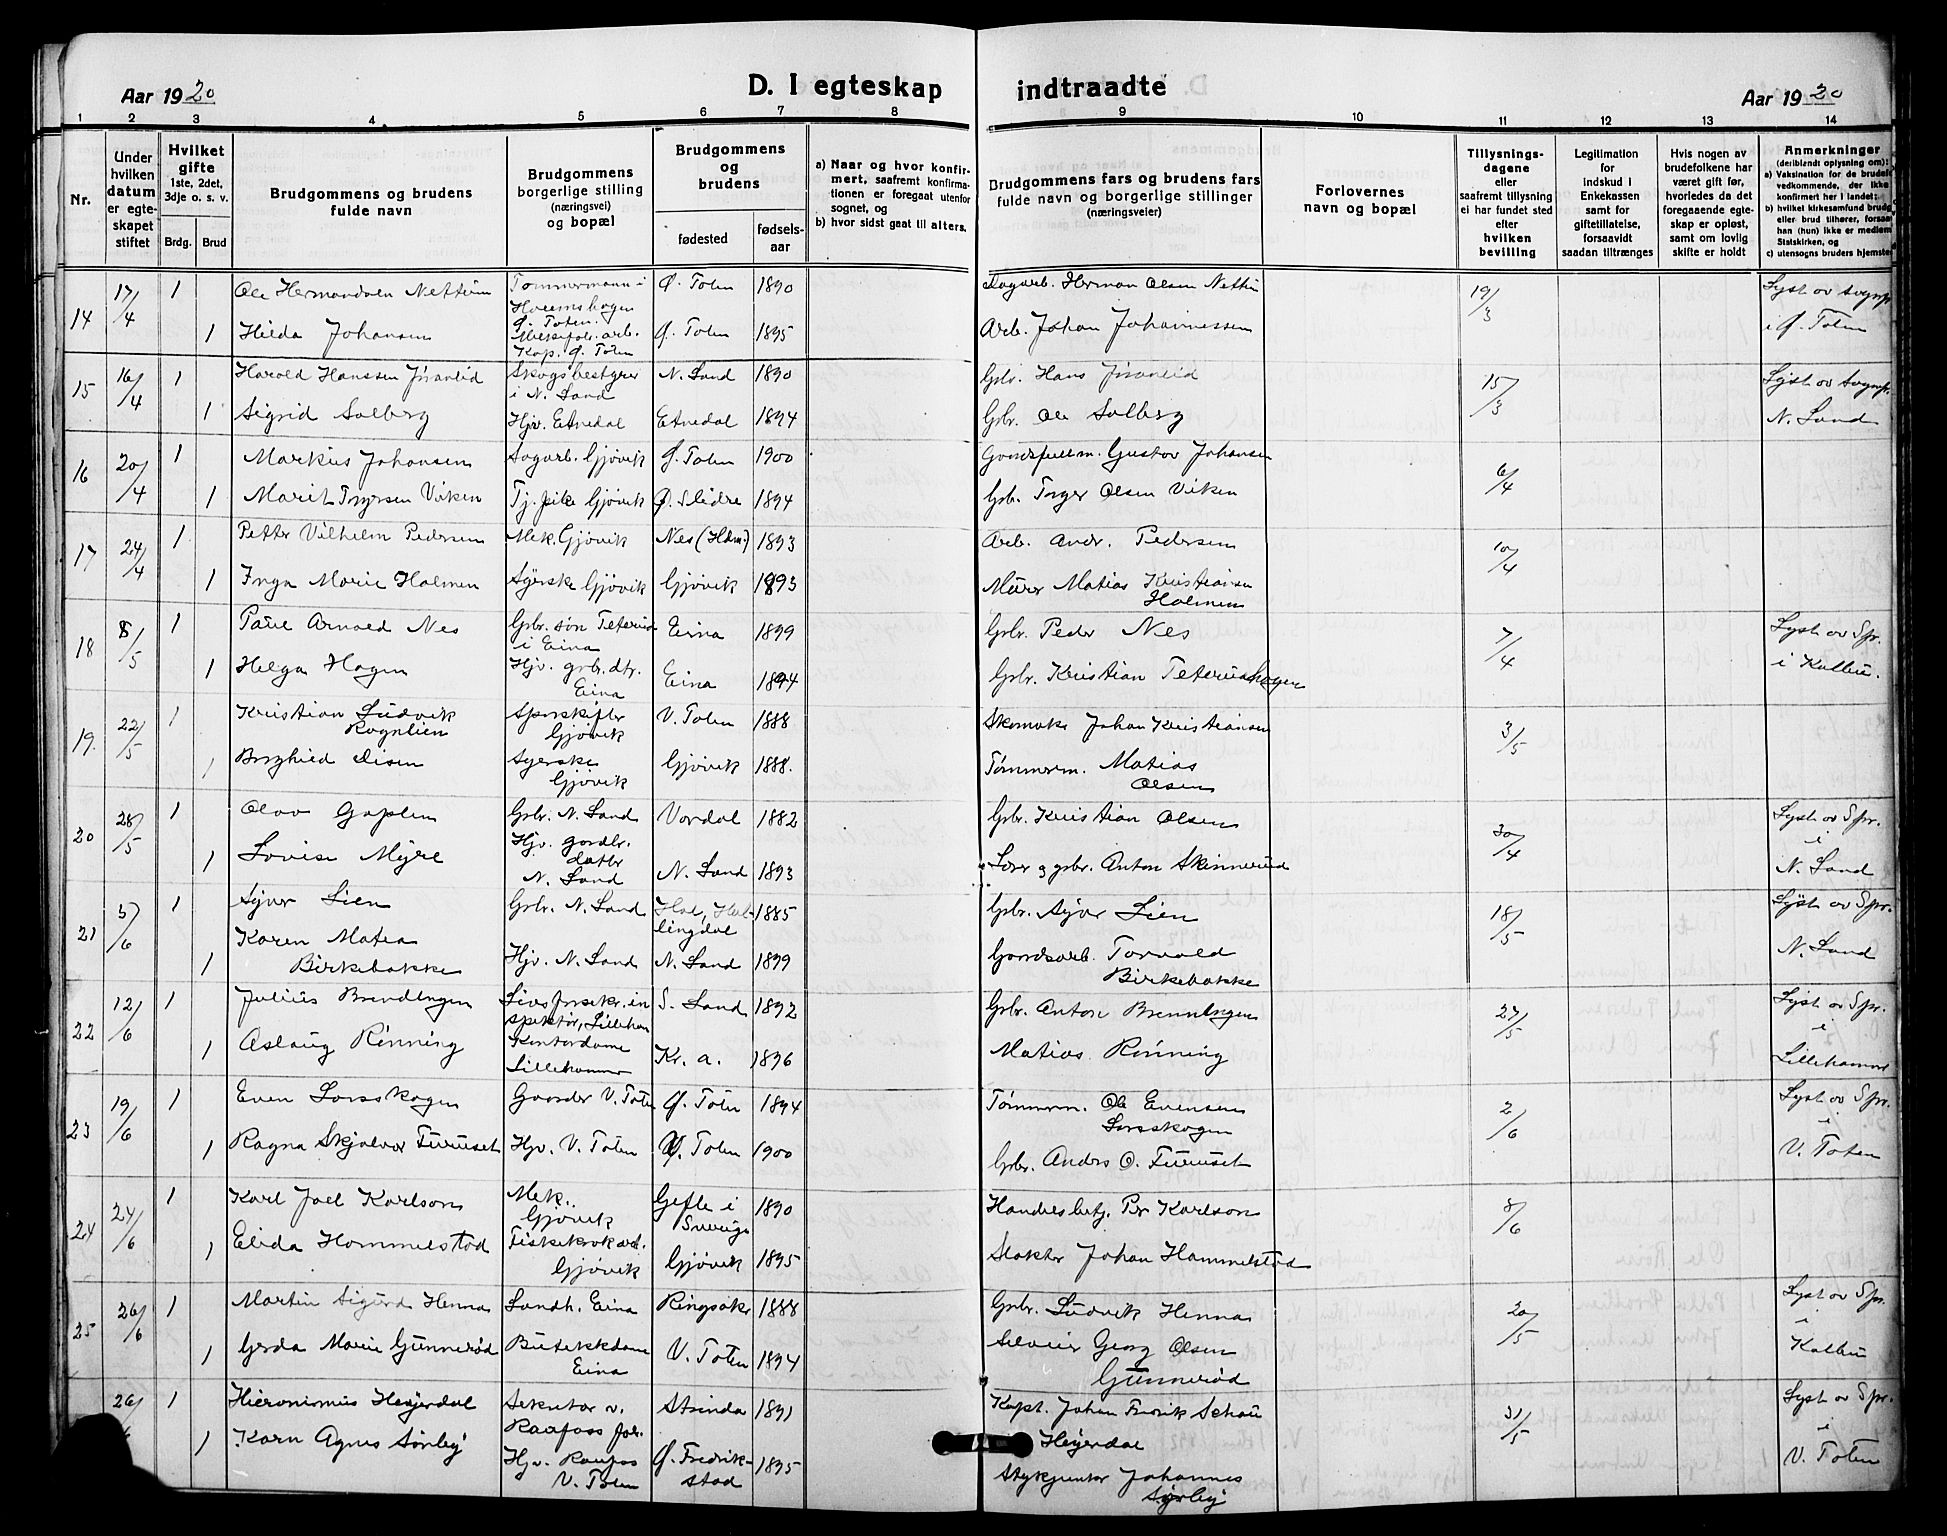 Aar 1920
D. I egteskap
indtraadte
Aar 1920
1 2 3 4 5 6 7 8 9 10 11 12 13 14
Nr.
Under hvilken datum er egteskapet stiftet
Hvilket gifte
1ste, 2det, 3dje o. s. v.
Brdg. Brud
Brudgommens og brudens fulde navn
Brudgommens borgerlige stilling (næringsvei) og bopæl
Brudgommens og brudens
fødested
fødsels-aar
a) Naar og hvor konfirmert, saafremt konfirmationen er foregaat utenfor sognet, og
b) hvor sidst gaat til alters.
Brudgommens fars og brudens fars fulde navn og borgerlige stillinger (næringsveier)
Forlovernes navn og bopæl
Tillysnings-dagene eller saafremt tillysning ei har fundet sted efter hvilken bevilling
Legitimation for indskud i Enkekassen samt for giftetillatelse, forsaavidt saadan tiltrænges
Hvis nogen av brudefolkene har været gift før, hvorledes da det foregaaende egteskap er opløst, samt om lovlig skifte er holdt
Anmerkninger
(deriblandt oplysning om):
14 17/4 1 Ole Hermandsen Nettum Tømmermann i Ø. Toten 1890 Herman Olsen Nettum 19/3 Lyst av Sognepr.
1 Hilda Johansen Kap. Ø. Toten Ø. Toten 1895 Arb. Johan Johannessen i Ø. Toten
15 16/4 1 Harald Hanssen Skogsbestyrer i N. Land N. Land 1890 Gbr. Hans 15/3 Lyst av Sognepr.
1 Sigrid Solberg Hjv. Etnedal Etnedal 1894 Gbr. Ole Solberg N. Land
16 20/4 1 Markus Johansen Sagarb. Gjøvik Ø. Toten 1900 Gaardsfullm. Gustav Johansen 6/4
1 Marit Viken Tj. pike Gjøvik Ø. Slidre 1894 Gbr. Olsen Viken
17 24/4 1 Petter Vilhelm Pedersen Mek. Gjøvik Nes (Hdm.) 1893 Arb. Andr. Pedersen 10/4
1 Inga Marie Holmen Syerske Gjøvik Gjøvik 1893 Murer Matias Kristiansen Holmen
18 8/5 1 Paul Arnold Nes Gbr. søn i Eina Eina 1899 Gbr. Peder Nes 7/4 Lyst av Spr.
1 Helga Hagen Hjv. grb. dtr. Eina Eina 1894 Gbr. Kristian i Kolbu.
19. 22/5 1 Kristian Ludvik Rognlien Gjøvik V. Toten 1888 Skomaker Johan Kristiansen 3/5
1 Borghild Olsen Syerske Gjøvik Gjøvik 1888. Tømmerm. Matias Olsen
20 28/5 1 Olav Gaplen Gbr. N. Land Vardal 1882 Gbr. Kristian Olsen 30/4 Lyst av Spr. i
1 Lovise Myre Hjv. gardbr. datter N. Land N. Land 1893 Lærer og gbr. Anton Skinnerud N. Land
21 5/6 1 Syver Lien Gbr. N. Land Hol, Hallingdal 1885 Gbr. Syver Lien 18/5 Lyst av Spr.
1 Karen Matea Birkebakke Hjv. N. Land N. Land 1899 Gaardsarb. Torvald Birkebakke N. Land
22 12/6 1 Julius Brendengen Livsforsikr. inspektør, Lilleham S. Land 1892 Gbr. Anton 27/5 Lyst av Spr. i
1 Aslaug Rønning Kontordame Lillehammer Kr. a. 1896 Matias Rønning Lillehamar
23 19/6 1 Even Lorsskogen V. Toten Ø. Toten 1894 Tømmerm. Ole Evensen Lorsskogen 2/6 Lyst av Spr. i
1 Ragna Skjalvor Furuset Hjv. V. Toten Ø. Toten 1900 Gbr. Anders O. Furuset V. Toten
24 24/6 1 Karl Joel Karlson Mek. Gjøvik Gefle i Sverige 1890 Handelsbetj. Per Karlson 8/6
1 Elida Hommelstad Fiskekrokarb. Gjøvik Gjøvik 1895 Slakter Johan Hammelstad
25 26/6 1 Martin Sigurd Henna Landh. Eina Ringsaker 1888 Gbr. Ludvik Henna 20/5 Lyst av Spr. i
1 Gerda Marie Gunnerød Butikkdame Eina V. Toten 1894 Georg Olsen Gunnerød Kolbu
26/ 1 Hieronimus Heyerdal Sekretær v. Raafoss fabr. Strinda 1891 Kapt. Johan Fredrik Schou Heyerdal 31/5 Lyst av Spr. i
1 Karn Agnes Sørby Hjv. Raufos V. Toten Ø. Fredrikstad 1895 Stykjunker Johannes Sørby V. Toten